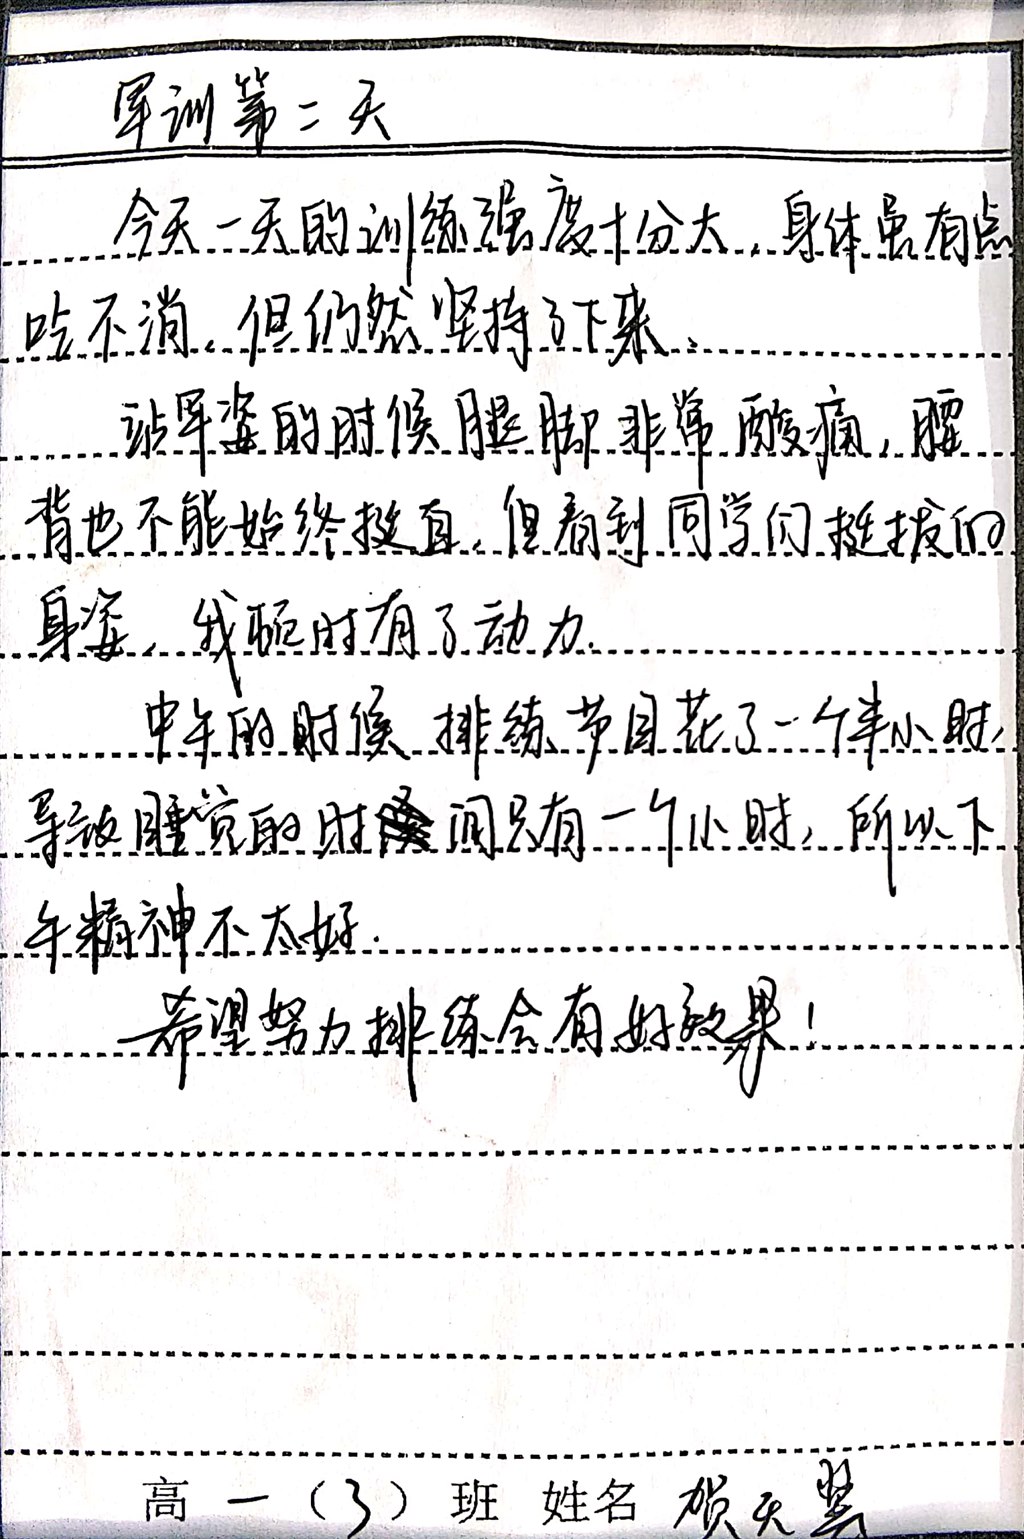 军训第二天
今天一天的训练强度十分大，身体虽有点
吃不消，但仍然坚持了下来。
站军姿的时候腿脚非常酸痛，腰
背也不能始终挺直，但看到同学们挺拔的
身姿，我顿时有了动力.
中午的时候排练节目花了一个半小时，
导致睡觉的时间只有一个小时，所以下
午精神不太好.
希望努力排练会有好效果！
高一（3）班 姓名 贺天翼